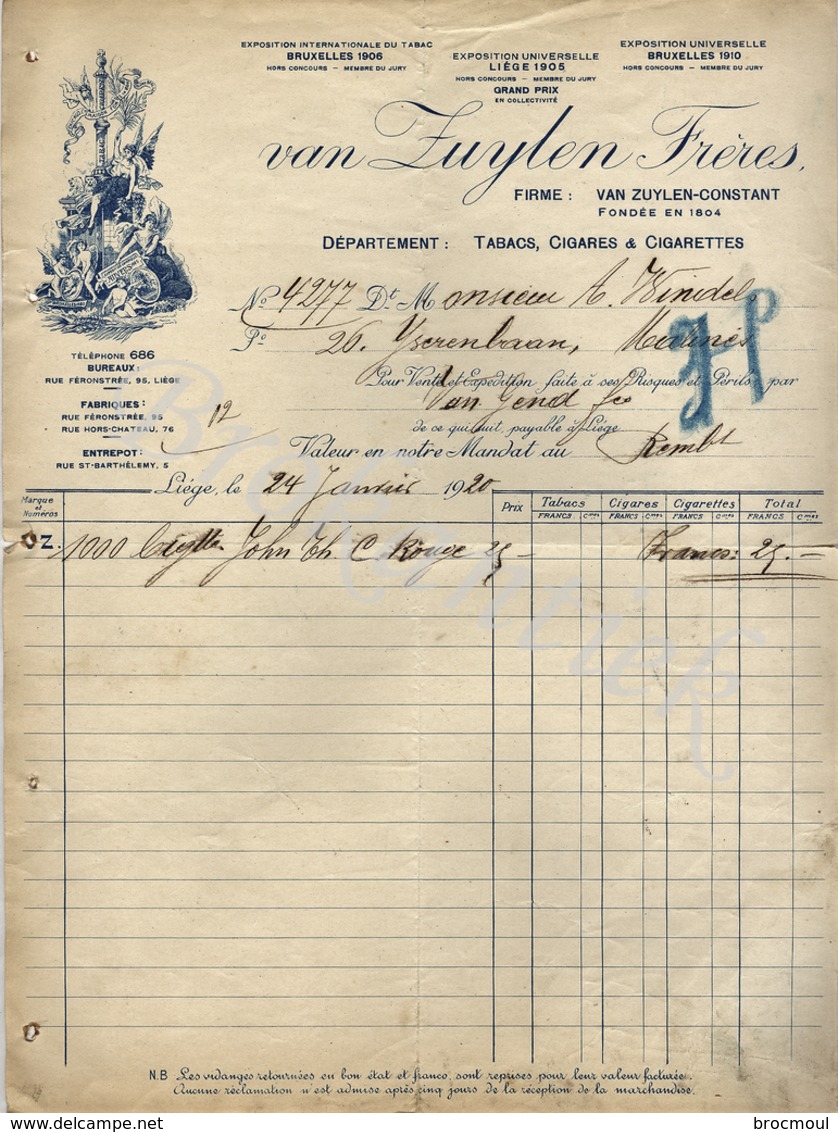 EXPOSITION INTERNATIONALE DU TABAC
BRUXELLES 1906
HORS CONCOURS — MEMBRE DU JURY
EXPOSITION UNIVERSELLE
LIÈGE 1905
HORS CONCOURS — MEMBRE DU JURY
GRAND PRIX
EN COLLECTIVITÉ
EXPOSITION UNIVERSELLE
BRUXELLES 1910
HORS CONCOURS — MEMBRE DU JURY
van Zuylen Frères,
FIRME : VAN ZUYLEN-CONSTANT
FONDÉE EN 1804
DÉPARTEMENT : TABACS, CIGARES & CIGARETTES
TABAC
No 4277 Dt. Monsieur A. Windels
Po 26. Yserenbaan, Malines
TÉLÉPHONE 686
BUREAUX :
RUE FÉRONSTRÉE, 95, LIÉGE
FABRIQUES :
RUE FÉRONSTRÉE, 95
RUE HORS-CHATEAU, 76
ENTREPOT :
RUE ST-BARTHÉLEMY, 5
12
Pour Vente et Expédition faite à ses Risques et Périls par
Van Gend fco
de ce qui suit, payable à Liége
Valeur en notre Mandat au Rembt
Liége, le 24 Janvier 1920
Marque et Numéros Prix Tabacs Cigares Cigarettes Total
FRANCS Cmes FRANCS Cmes FRANCS Cmes FRANCS Cmes
OZ. 1000 John Th. C. Rouge 25 — Francs: 25. —
N.B Les vidanges retournées en bon état et franco, sont reprises pour leur valeur facturée.
Aucune réclamation n'est admise après cinq jours de la réception de la marchandise.
Brokantiek
delcampe.net
brocmoul